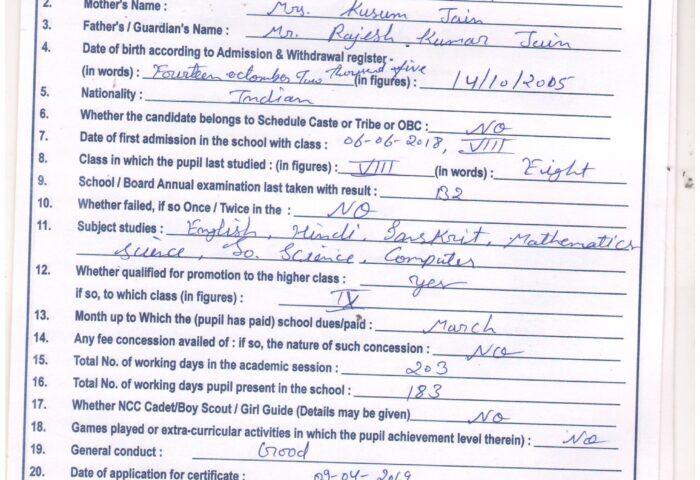 2. Mother's Name : Mrs. Kusum Jain
3. Father's / Guardian's Name : Mr. Rajesh Kumar Jain
4. Date of birth according to Admission & Withdrawal register -
(in words) : Fourteen octomber Two thousand five (in figures) : 14/10/2005
5. Nationality : Indian
6. Whether the candidate belongs to Schedule Caste or Tribe or OBC : NO
7. Date of first admission in the school with class : 06-06-2018, VIII
8. Class in which the pupil last studied : (in figures) : VIII (in words) : Eight
9. School / Board Annual examination last taken with result : B2
10. Whether failed, if so Once / Twice in the : NO
11. Subject studies : English, Hindi, Sanskrit, Mathematics
Science, So. Science, Computer
12. Whether qualified for promotion to the higher class : yes
if so, to which class (in figures) : IX
13. Month up to Which the (pupil has paid) school dues/paid : March
14. Any fee concession availed of : if so, the nature of such concession : NO
15. Total No. of working days in the academic session : 203
16. Total No. of working days pupil present in the school : 183
17. Whether NCC Cadet/Boy Scout / Girl Guide (Details may be given) NO
18. Games played or extra-curricular activities in which the pupil achievement level therein) : NO
19. General conduct : Good
20. Date of application for certificate : 09-04-2019